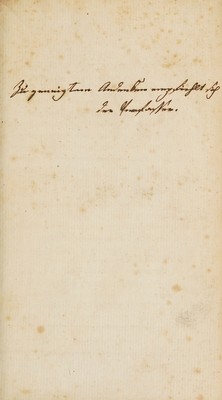 Zu geneigtem Andenken empfiehlt sich
der Verfasser.